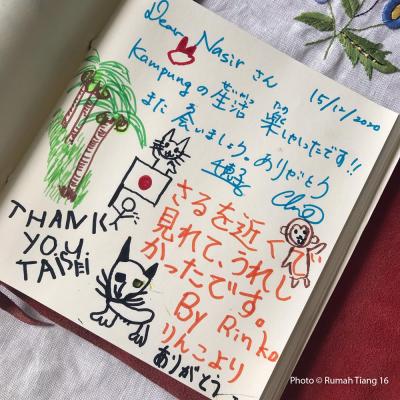 Dear Nasir さん
15/12/2020
せいかつ たの
Kampungの生活 楽しかったです!!
あ
また会いましょう。ありがとう
さるを近くで
見れて、うれし
かったです。
By Rinko
りんこより
ありがとう
THANK
YOU
TAISEI
Photo © Rumah Tiang 16